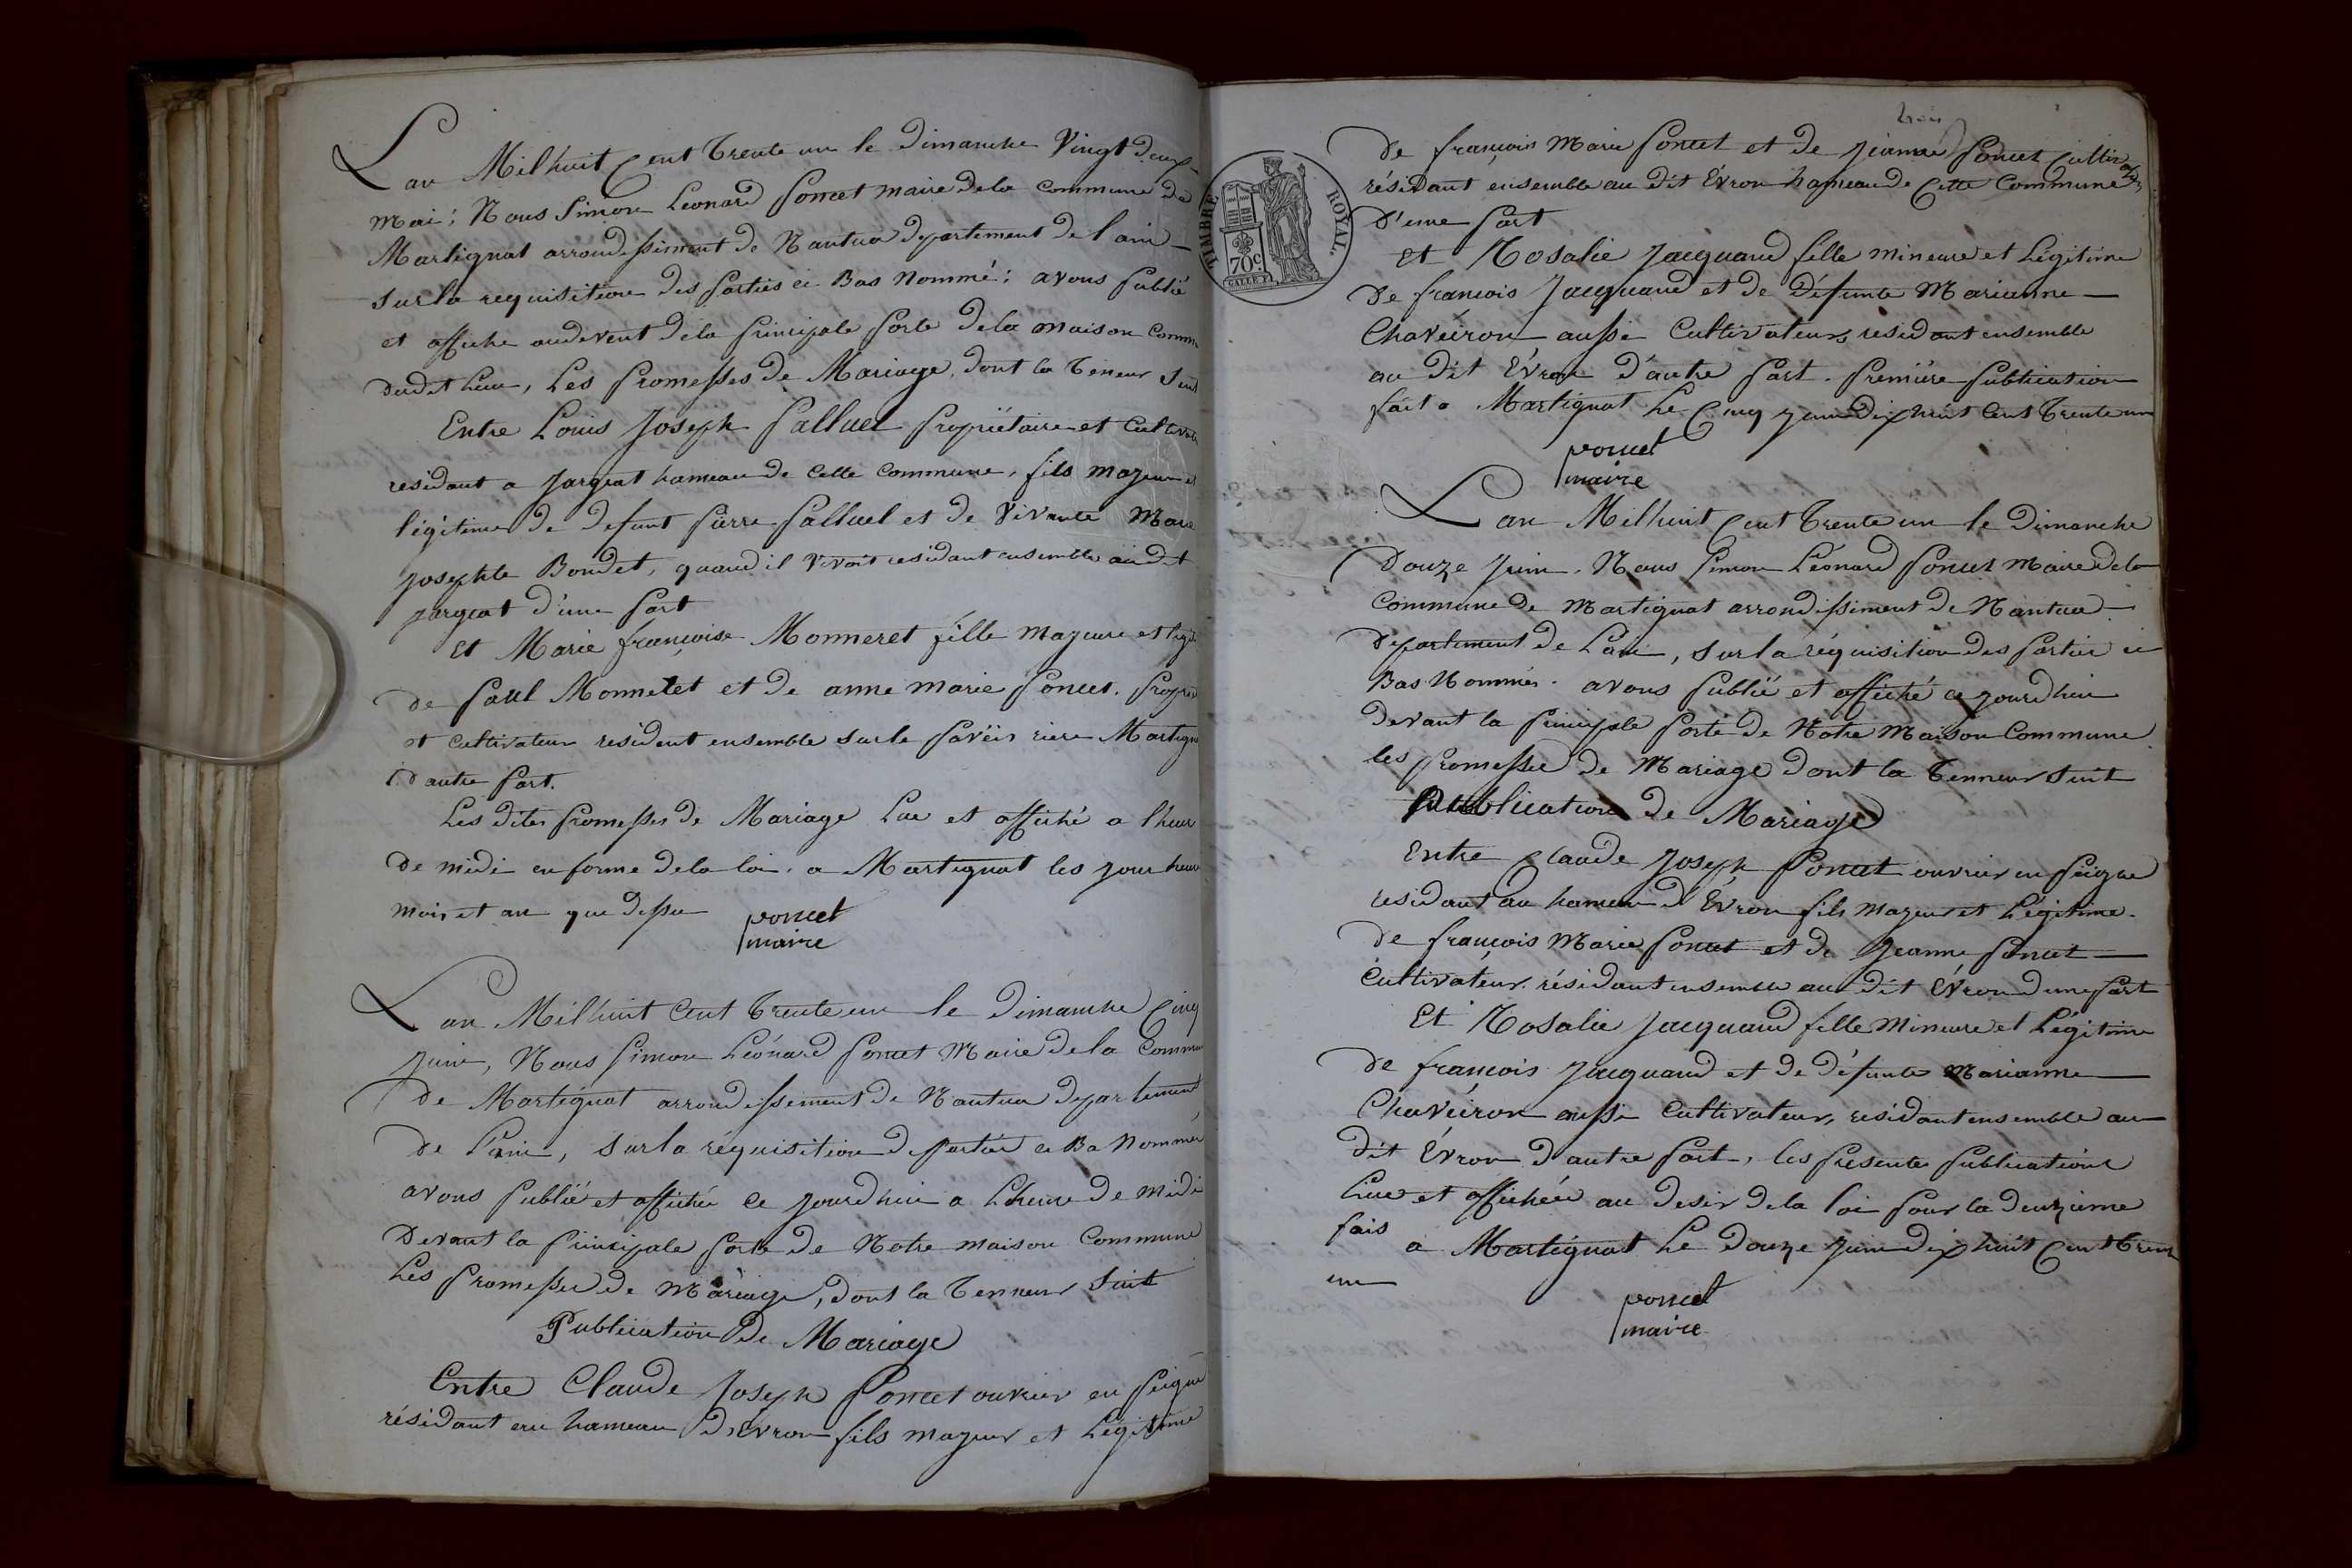 L'an Mil huit Cent trente un le Dimanche Vingt deux
Mai; Nous Simon Leonard Poncet maire dela commune de
Martignat arrondissement de Nantua departement de l'ain
sur la requisitione des parties ci Bas Nommé; avons publié
et affiche audevent dela principale porte dela maison Comm
dudit lieu, les promesses de Mariage, dont la teneur suit
Entre Louis Joseph Palluel propriétaire et Cultivat
residant a jargeat hameau de cette commune, fils majeur et
légitime de defunt pierre Palluel et de Vivante Marie
josephte Bondet, quand il vivoit residant ensemble audit
jargeat d'une part
Et Marie françoise Monneret fille majeure et legit
de Paul Monneret et de anne marie Poncet. Propri
et cultivateur resident ensemble sur le rière Martign
d'autre part.
Les dites promesses de Mariage lue et affiché a l'heur
de midi en forme dela loi. a Martignat les jour heur
mois et an que dessu
poncet
maire
L'an Mil huit Cent trente un le Dimanche Cinq
juin, Nous Simon Léonard Poncet Maire de la Commu
de Martignat arrondissement de Nantua departement
de l'ain, sur la réquisitione de partie ci Ba Nommés
avons publié et affiché ce jourd'hui a l'heure de midi
Devant la principale porte de Notre maison Commune
Les promesse de Mariage, dont la tenneur suit
Publication de Mariage
Entre Claude Joseph Poncet ouvrier en peigne
résidant au hameau d'Évron fils majeur et Légitime
trois
TIMBRE ROYAL.
70c
GALLE F.
de françois Marie Poncet et de jeanne Poncet Cultivateurs
résidant ensemble au dit Évron hameau de Cette Commune
d'une part
et Rosalie Jacquand fille mineure et Légitime
de francois Jacquand et de Défunte Marianne
Chavéiron aussi Cultivateurs residant ensemble
au dit Évron d'autre part. première publication
fait a Martignat le Cinq juin dix huit Cent trente un
poncet
maire
L'an Mil huit Cent trente un le Dimanche
Douze juin. Nous Simon Léonard Poncet Maire dela
Commune de Martignat arrondissiment de Nantua
departement de L'ain, sur la réquisition des partie ci
Bas Nommés. avons publié et affiché ce jourdhui
devant la principale porte de Notre Maison Commune
les promesse de Mariage dont la tenneur suit
Publication de Mariage
Entre Claude Joseph Poncet ouvrier en peigne
residant au hameau d'Évron fils Majeur et Légitime.
de françois Marie Poncet et de Jeanne Poncet
Cultivateur. résidant ensemble au dit Évron dune part
Et Rosalie Jacquand fille Mineure et Légitime
de francois Jacquand et de défunte Marianne
Chavéiron aussi Cultivateur, residant ensemble au
dit Évron d'autre part, les présente publications
Lue et affichée au desir de la loi pour la deuzieme
fais a Martignat le Douze juin dix huit Cent trent
un
poncet
maire